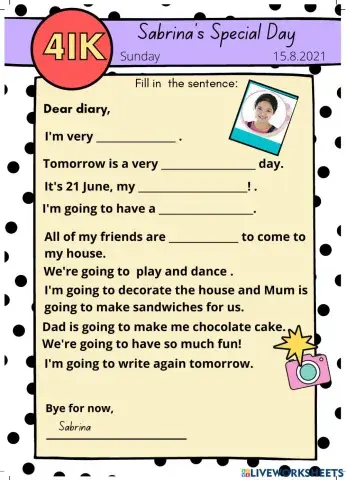 41K
Sabrina's Special Day
Sunday 15.8.2021
Fill in the sentence:
Dear diary,
I'm very _______________ .
Tomorrow is a very __________________ day.
It's 21 June, my _____________________! .
I'm going to have a __________________.
All of my friends are _____________ to come to
my house.
We're going to play and dance .
I'm going to decorate the house and Mum is
going to make sandwiches for us.
Dad is going to make me chocolate cake.
We're going to have so much fun!
I'm going to write again tomorrow.
Bye for now,
Sabrina
LIVEWORKSHEETS